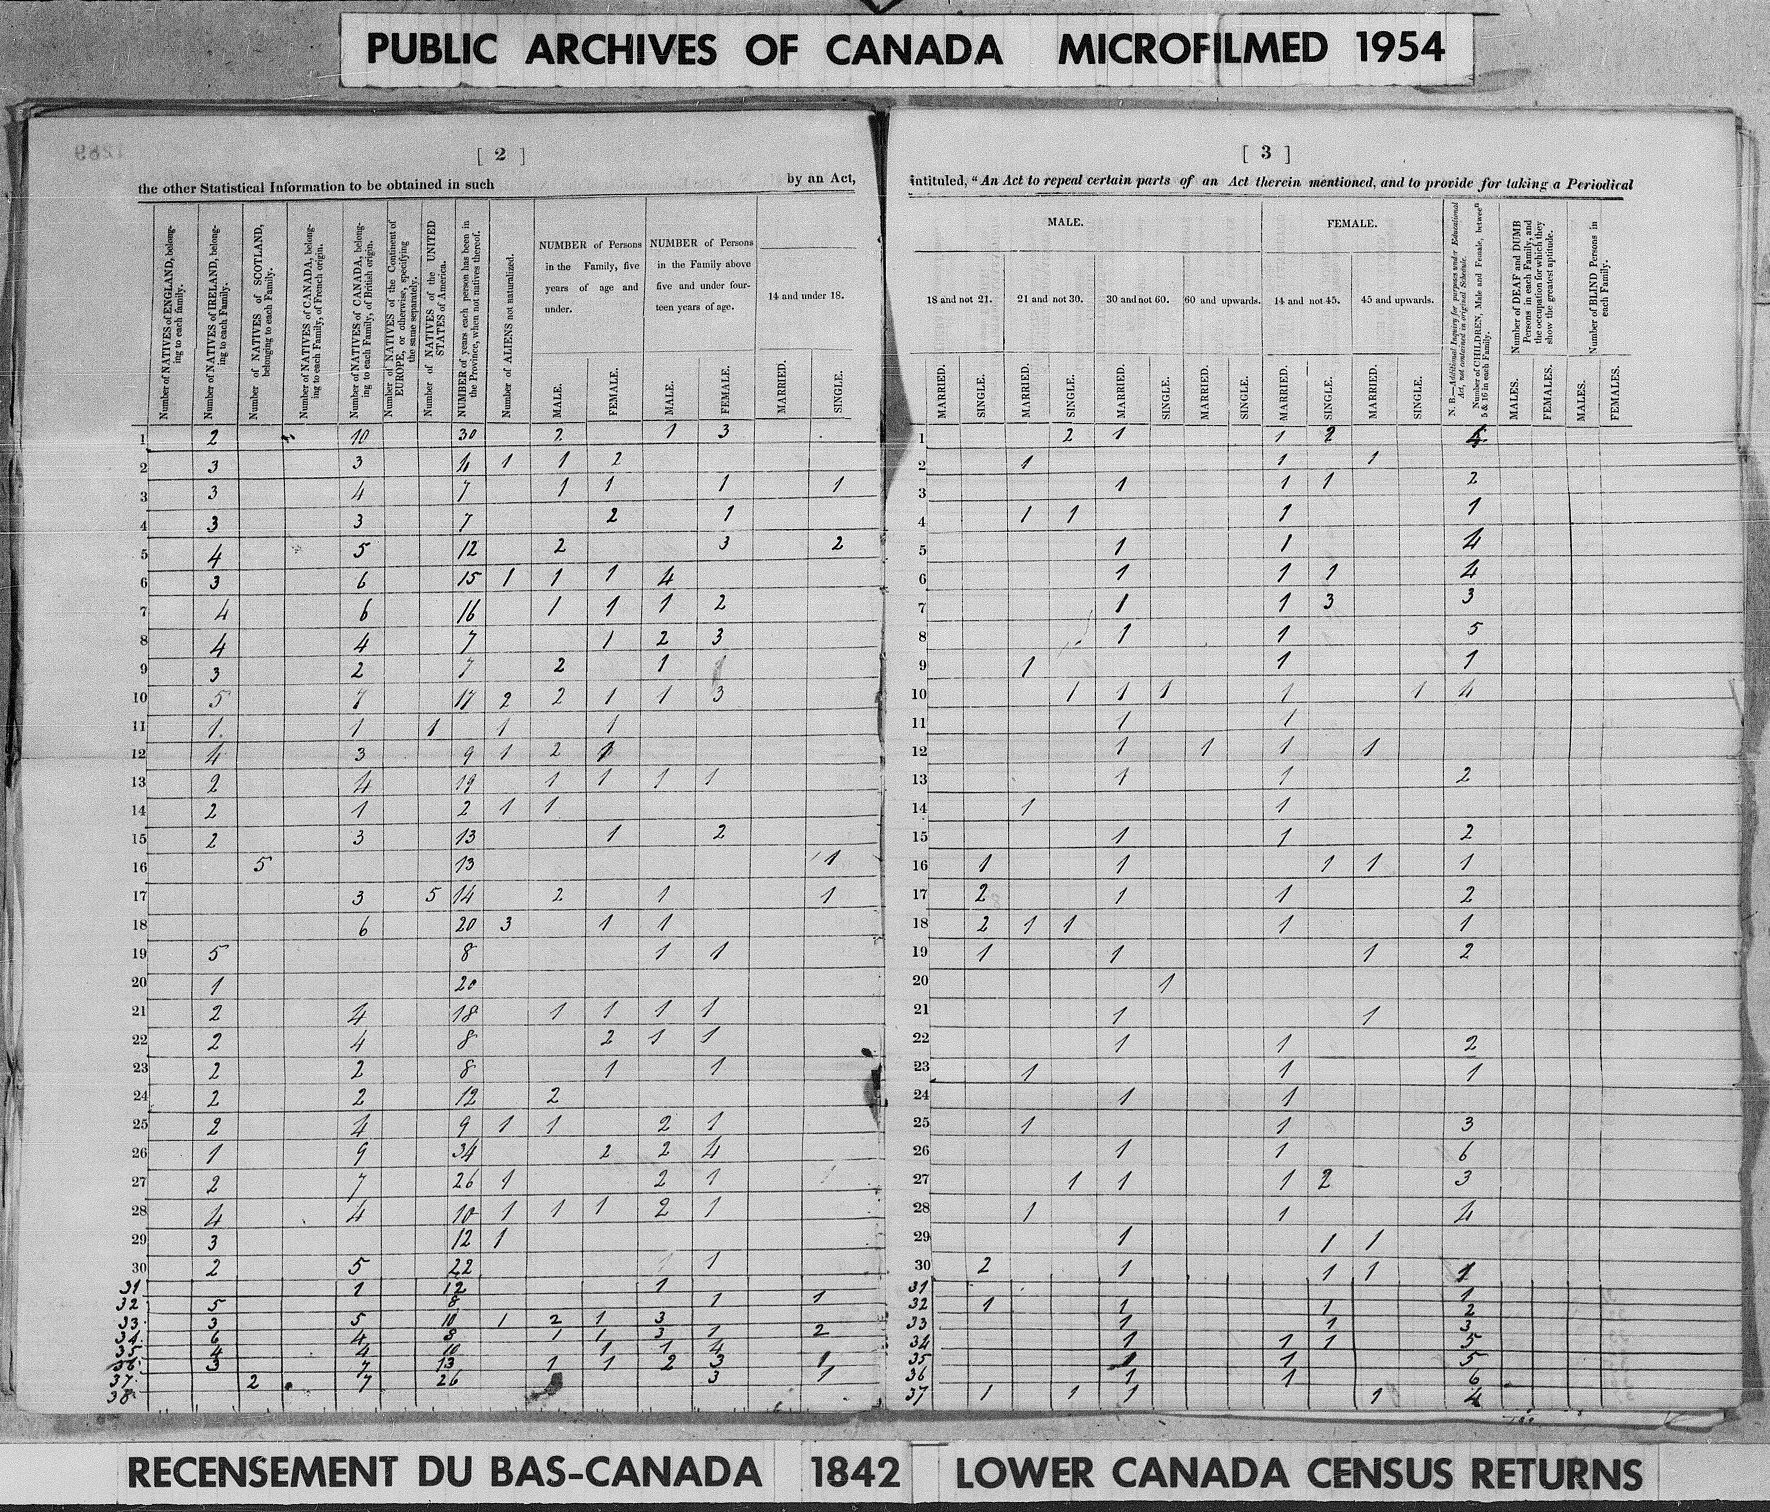 PUBLIC ARCHIVES OF CANADA MICROFILMED 1954
[ 2 ]
the other Statistical Information to be obtained in such by an Act,
Number of NATIVES of ENGLAND, belonging to each family.
Number of NATIVES of IRELAND, belonging to each Family.
Number of NATIVES of SCOTLAND, belonging to each Family.
Number of NATIVES of CANADA, belonging to each Family, of French origin.
Number of NATIVES of CANADA, belonging to each Family, of British origin.
Number of NATIVES of the Continent of EUROPE, or otherwise, specifying the same separately.
Number of NATIVES of the UNITED STATES of America.
NUMBER of years each person has been in the Province, when not natives thereof.
Number of ALIENS not naturalized.
NUMBER of Persons in the Family, five years of age and under.
MALE. FEMALE.
NUMBER of Persons in the Family above five and under fourteen years of age.
MALE. FEMALE.
14 and under 18.
MARRIED. SINGLE.
1 2 10 30 2 1 3
2 3 3 11 1 1 2
3 3 4 7 1 1 1 1
4 3 3 7 2 1
5 4 5 12 2 3 2
6 3 6 15 1 1 1 4
7 4 6 16 1 1 1 2
8 4 4 7 1 2 3
9 3 2 7 2 1 1
10 5 7 17 2 2 1 1 3
11 1 1 1 1 1
12 4 3 9 1 2 1
13 2 4 19 1 1 1 1
14 2 1 2 1 1
15 2 3 13 1 2
16 5 13 1
17 3 5 14 2 1 1
18 6 20 3 1 1
19 5 8 1 1
20 1 20
21 2 4 18 1 1 1 1
22 2 4 8 2 1 1
23 2 2 8 1 1
24 2 2 12 2
25 2 4 9 1 1 2 1
26 1 9 34 2 2 4
27 2 7 26 1 2 1
28 4 4 10 1 1 1 2 1
29 3 12 1
30 2 5 22 1
31 1 12 1
32 5 8 1 1
33 3 5 10 1 2 1 3
34 6 4 8 1 1 3 1 2
35 4 4 10 1 1 4
36 3 7 13 1 1 2 3 1
37 2 7 26 3 1
38
[ 3 ]
intituled, "An Act to repeal certain parts of an Act therein mentioned, and to provide for taking a Periodical
MALE.
18 and not 21. 21 and not 30. 30 and not 60. 60 and upwards.
MARRIED. SINGLE. MARRIED. SINGLE. MARRIED. SINGLE. MARRIED. SINGLE.
FEMALE.
14 and not 45. 45 and upwards.
MARRIED. SINGLE. MARRIED. SINGLE.
N. B.—Additional Inquiry for purposes under Educational Act, not contained in original Schedule.
Number of CHILDREN, Male and Female, between 5 & 16 in each Family.
Number of DEAF and DUMB Persons in each Family, and the occupation for which they show the greatest aptitude.
MALES. FEMALES.
Number of BLIND Persons in each Family.
MALES. FEMALES.
1 2 1 1 2
2 1 1 1
3 1 1 1 2
4 1 1 1 1
5 1 1 4
6 1 1 1 4
7 1 1 3 3
8 1 1 5
9 1 1 1
10 1 1 1 1 1 4
11 1 1
12 1 1 1 1
13 1 1 2
14 1 1
15 1 1 2
16 1 1 1 1 1
17 2 1 1 2
18 2 1 1 1 1
19 1 1 1 2
20 1
21 1 1
22 1 1 2
23 1 1 1
24 1 1
25 1 1 3
26 1 1 6
27 1 1 1 2 3
28 1 1 4
29 1 1 1
30 2 1 1 1 1
31 1
32 1 1 1 2
33 1 1 3
34 1 1 1 5
35 1 1 5
36 1 1 6
37 1 1 1 1 4
RECENSEMENT DU BAS-CANADA 1842 LOWER CANADA CENSUS RETURNS